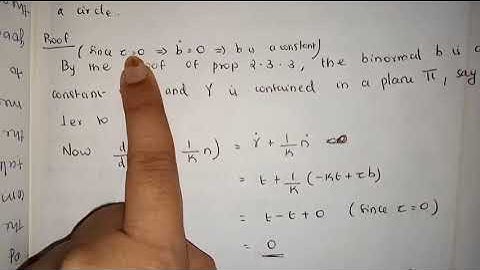 a circle.
Proof
(Since τ=0 ⇒ ḃ=0 ⇒ b is a constant)
By the of prop 2.3.3, the binormal b is a
constant and γ is contained in a plane Π, say
to
Now d/d 1/κ n) = γ̇ + 1/κ ṅ
= t + 1/κ (-κt + τb)
= t - t + 0 (since τ=0)
= 0